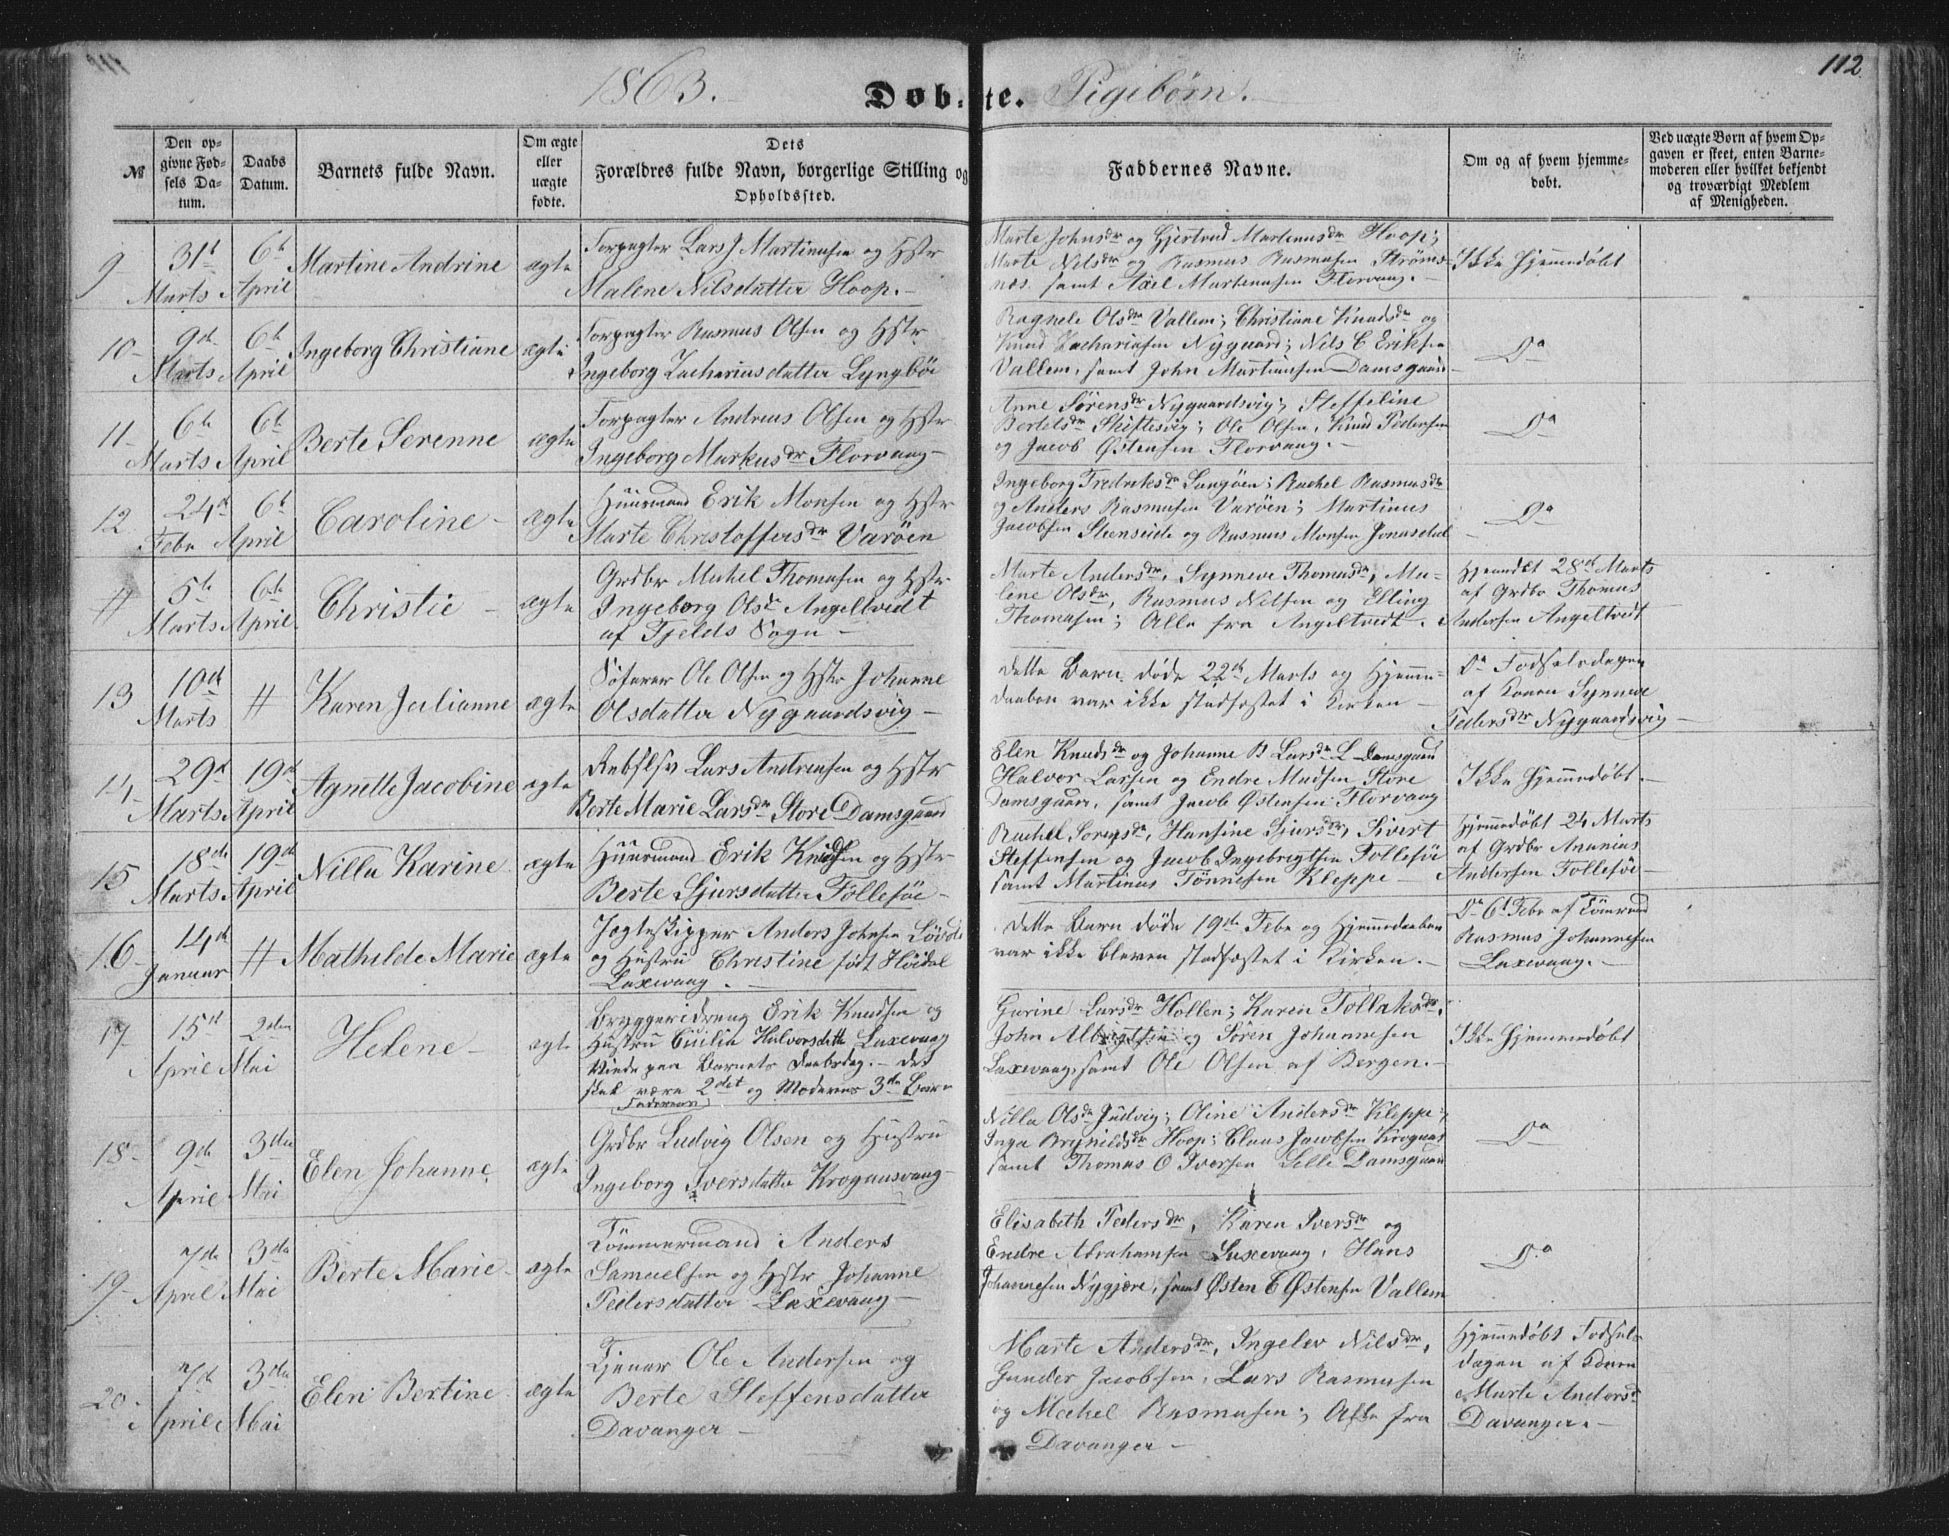 112
1863. Døbte. Pigebørn.
№
Den opgivne Fødsels Datum.
Daabs Datum.
Barnets fulde Navn.
Om ægte eller uægte fødte.
Dets Forældres fulde Navn, borgerlige Stilling og Opholdssted.
Faddernes Navne.
Om og af hvem hjemmedøbt.
Ved uægte Børn af hvem Opgaven er skeet, enten Barnemoderen eller hvilket bekjendt og troværdigt Medlem af Menigheden.
9
31t Marts
6t April
Martine Andrine
ægte
Forpagter Lars J Martinusen og Hstr
Malene Nilsdatter Hoop.
Marte Johnsdr og Gjertrud Martinusdr Hoop;
Marte Nilsdr og Rasmus Rasmusen Strømsnæs. samt Axel Martinusen Florvaag.
Ikke hjemmedøbt
10
9d Marts
6t April
Ingeborg Christiane
ægte
Forpagter Rasmus Olsen og Hstr
Ingeborg Zachariasdatter Lyngböe
Ragnele Olsdr Vallem; Christiane Knudsdr og
Knud Zachariasen Nygaard; Nils C Eriksen
Vallem, samt John Martinusen Damsgaard
Do
11
6te Marts
6t April
Berte Serenne
ægte
Forpagter Andreas Olsen og Hstr
Ingeborg Markusdr Florvaag
Anne Sørensdr Nygaardsvig; Steffeline
Bertelsdr Skiftesvig; Ole Olsen, Knud Pedersen
og Jacob Østensen Florvaag.
Do
12
24d Febr
6t April
Caroline
ægte
Huusmand Erik Monsen og Hstr
Marte Christoffersdr Varöen
Ingeborg Fredriksdr Sangöen; Rachel Rasmusdr
og Anders Rasmusen Varöen; Martinus
Jacobsen Steenseide og Rasmus Monsen Jonasdal
Do
#
5te Marts
6te April
Christie
ægte
Grdbr Mechel Thomasen og Hstr
Ingeborg Olsdr Angeltvedt
af Fjelds Sogn
Marte Andersdr, Synneve Thomasdr, Malene Olsdr, Rasmus Nilsen og Elling
Thomasen; Alle fra Angeltvedt.
Hjemmdbt 28de Marts
af Grdbr Thomas
Andersen Angeltvedt
13
10d Marts
#
Karen Julianne
ægte
Søfarer Ole Olsen og Hstr Johanne
Olsdatter Nygaardsvig
Dette Barn døde 22de Marts og Hjemmedaaben var ikke stadfæstet i Kirken
Do Fødselsdagen
af Konen Synneve
Pedersdr Nygaardsvig
14
29d Marts
19d April
Agnette Jacobine
ægte
Rebslgr Lars Andreasen og Hstr
Berte Marie Larsdr Store Damsgaard
Elen Knudsdr og Johanne B Larsdr L Damsgaard
Halvor Larsen og Endre Madsen Store
Damsgaard, samt Jacob Østensen Florvaag
Ikke hjemmedøbt.
15
18de Marts
19d April
Nilla Karine
ægte
Huusmand Erik Knudsen og Hstr
Berte Sjursdatter Follesöe
Rachel Sorensdr, Hansine Sjursdr, Sivert
Steffensen og Jacob Ingebrigtsen Follesöe
samt Martinus Tönnesen Kleppe
Hjemmedøbt 24 Marts
af Grdbr Ananias
Andersen Follesöe
16
14d Januar
#
Mathilde Marie
ægte
Jagteskipper Anders Johnsen
og Hustru Christine født Höidal
Laxevaag.
Dette Barn døde 19de Febr og Hjemmedaaben
var ikke bleven stadfæstet i Kirken.
Do 6t Febr af Tömmrmd
Rasmus Johannesen
Laxevaag.
17
15d April
2den Mai
Helene
ægte
Bryggeridreng Erik Knudsen og
Hustru Cicilia Halvorsdatt Laxevaag
Viede paa Barnets Daabsdag. Det
skal være Faderens 2det og Moderens 3de Barn
Gurine Larsdr Hollen; Karen Tollaksdr,
John Albrigtsen og Sören Johannesen
Laxevaag, samt Ole Olsen af Bergen.
Ikke hjemmedøbt
18
9d April
3die Mai
Elen Johanne
ægte
Grdbr Ludvig Olsen og Hustru
Ingeborg Iversdatter Krogaasvaag
Nilla Olsdr Judvig; Oline Andersdr Kleppe;
Inga Brynildsdr Hoop; Claus Jacobsen Krogaas
samt Thomas O Iversen Lille Damsgaard
Do
19
7de April
3die Mai
Berte Marie
ægte
Tömmermand Anders
Samuelsen og Hstr Johanne
Pedersdatter Laxevaag
Elisabeth Pedersdr, Karen Iversdr og
Endre Abrahamsen Laxevaag, Hans
Johannesen Nygjære, samt Østen C Østensen Vallem
Do
20
7de April
3die Mai
Elen Bertine
ægte
Tjener Ole Andersen og
Berte Steffensdatter
Davanger
Marte Andersdr, Ingelev Nilsdr,
Gunder Jacobsen, Lars Rasmusen
og Mechel Rasmusen; Alle fra
Davanger
Hjemmedøbt Fødselsdagen af Konen
Marte Andersdr
Davanger.